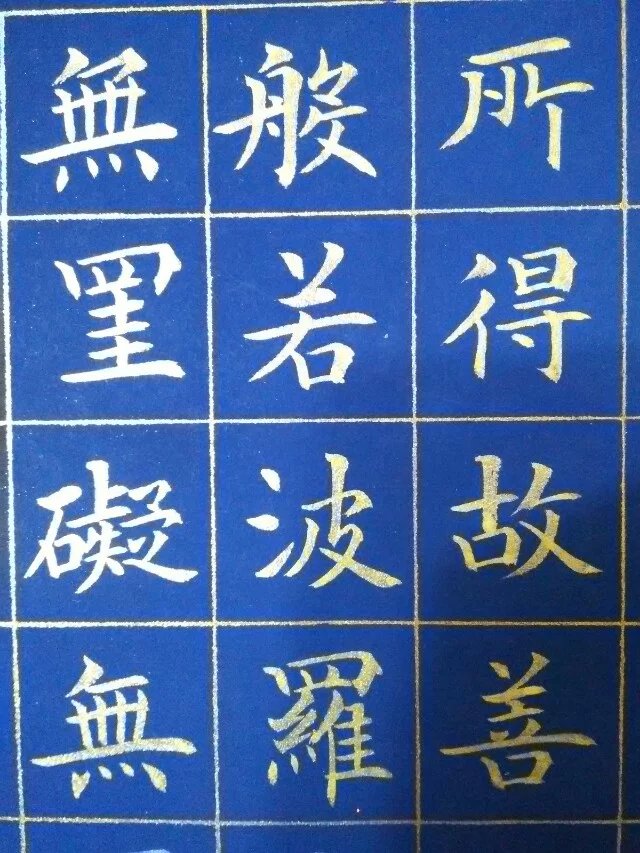 所得故菩
般若波羅
無罣礙無